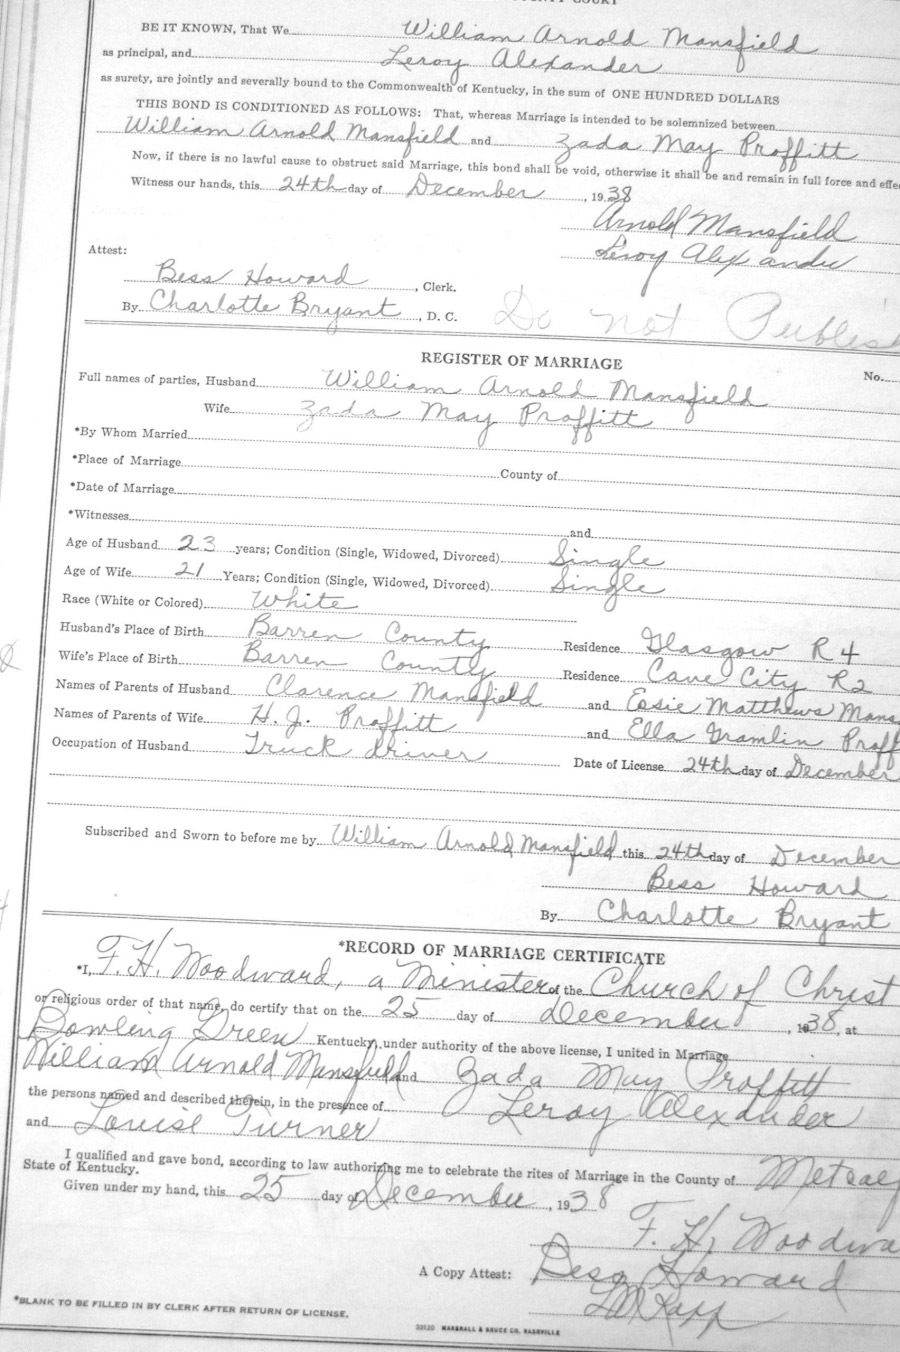 BE IT KNOWN, That We William Arnold Mansfield
as principal, and Leroy Alexander
as surety, are jointly and severally bound to the Commonwealth of Kentucky, in the sum of ONE HUNDRED DOLLARS
THIS BOND IS CONDITIONED AS FOLLOWS: That, whereas Marriage is intended to be solemnized between
William Arnold Mansfield and Zada May Proffitt
Now, if there is no lawful cause to obstruct said Marriage, this bond shall be void, otherwise it shall be and remain in full force and effec
Witness our hands, this 24th day of December, 1938
Arnold Mansfield
Leroy Alexander
Attest:
Bess Howard, Clerk.
By Charlotte Bryant, D. C.
Do not Publish
REGISTER OF MARRIAGE
No.
Full names of parties, Husband William Arnold Mansfield
Wife Zada May Proffitt
*By Whom Married
*Place of Marriage County of
*Date of Marriage
*Witnesses and
Age of Husband 23 years; Condition (Single, Widowed, Divorced) Single
Age of Wife 21 Years; Condition (Single, Widowed, Divorced) Single
Race (White or Colored) White
Husband's Place of Birth Barren County Residence Glasgow R 4
Wife's Place of Birth Barren County Residence Cave City R2
Names of Parents of Husband Clarence Mansfield and Essie Matthews Mans
Names of Parents of Wife H. J. Proffitt and Ella Gramlin Proff
Occupation of Husband Truck driver Date of License 24th day of December
Subscribed and Sworn to before me by William Arnold Mansfield this 24th day of December
Bess Howard
By Charlotte Bryant
*RECORD OF MARRIAGE CERTIFICATE
*I, F. H. Woodward, a Minister of the Church of Christ
or religious order of that name, do certify that on the 25 day of December, 1938, at
Bowling Green Kentucky, under authority of the above license, I united in Marriage
William Arnold Mansfield and Zada May Proffitt
the persons named and described therein, in the presence of Leroy Alexander
and Louise Turner
I qualified and gave bond, according to law authorizing me to celebrate the rites of Marriage in the County of Metcalf
State of Kentucky.
Given under my hand, this 25 day of December, 1938
F. H. Woodwa
A Copy Attest: Bess Howard
*BLANK TO BE FILLED IN BY CLERK AFTER RETURN OF LICENSE.
MARSHALL & BRUCE CO. NASHVILLE